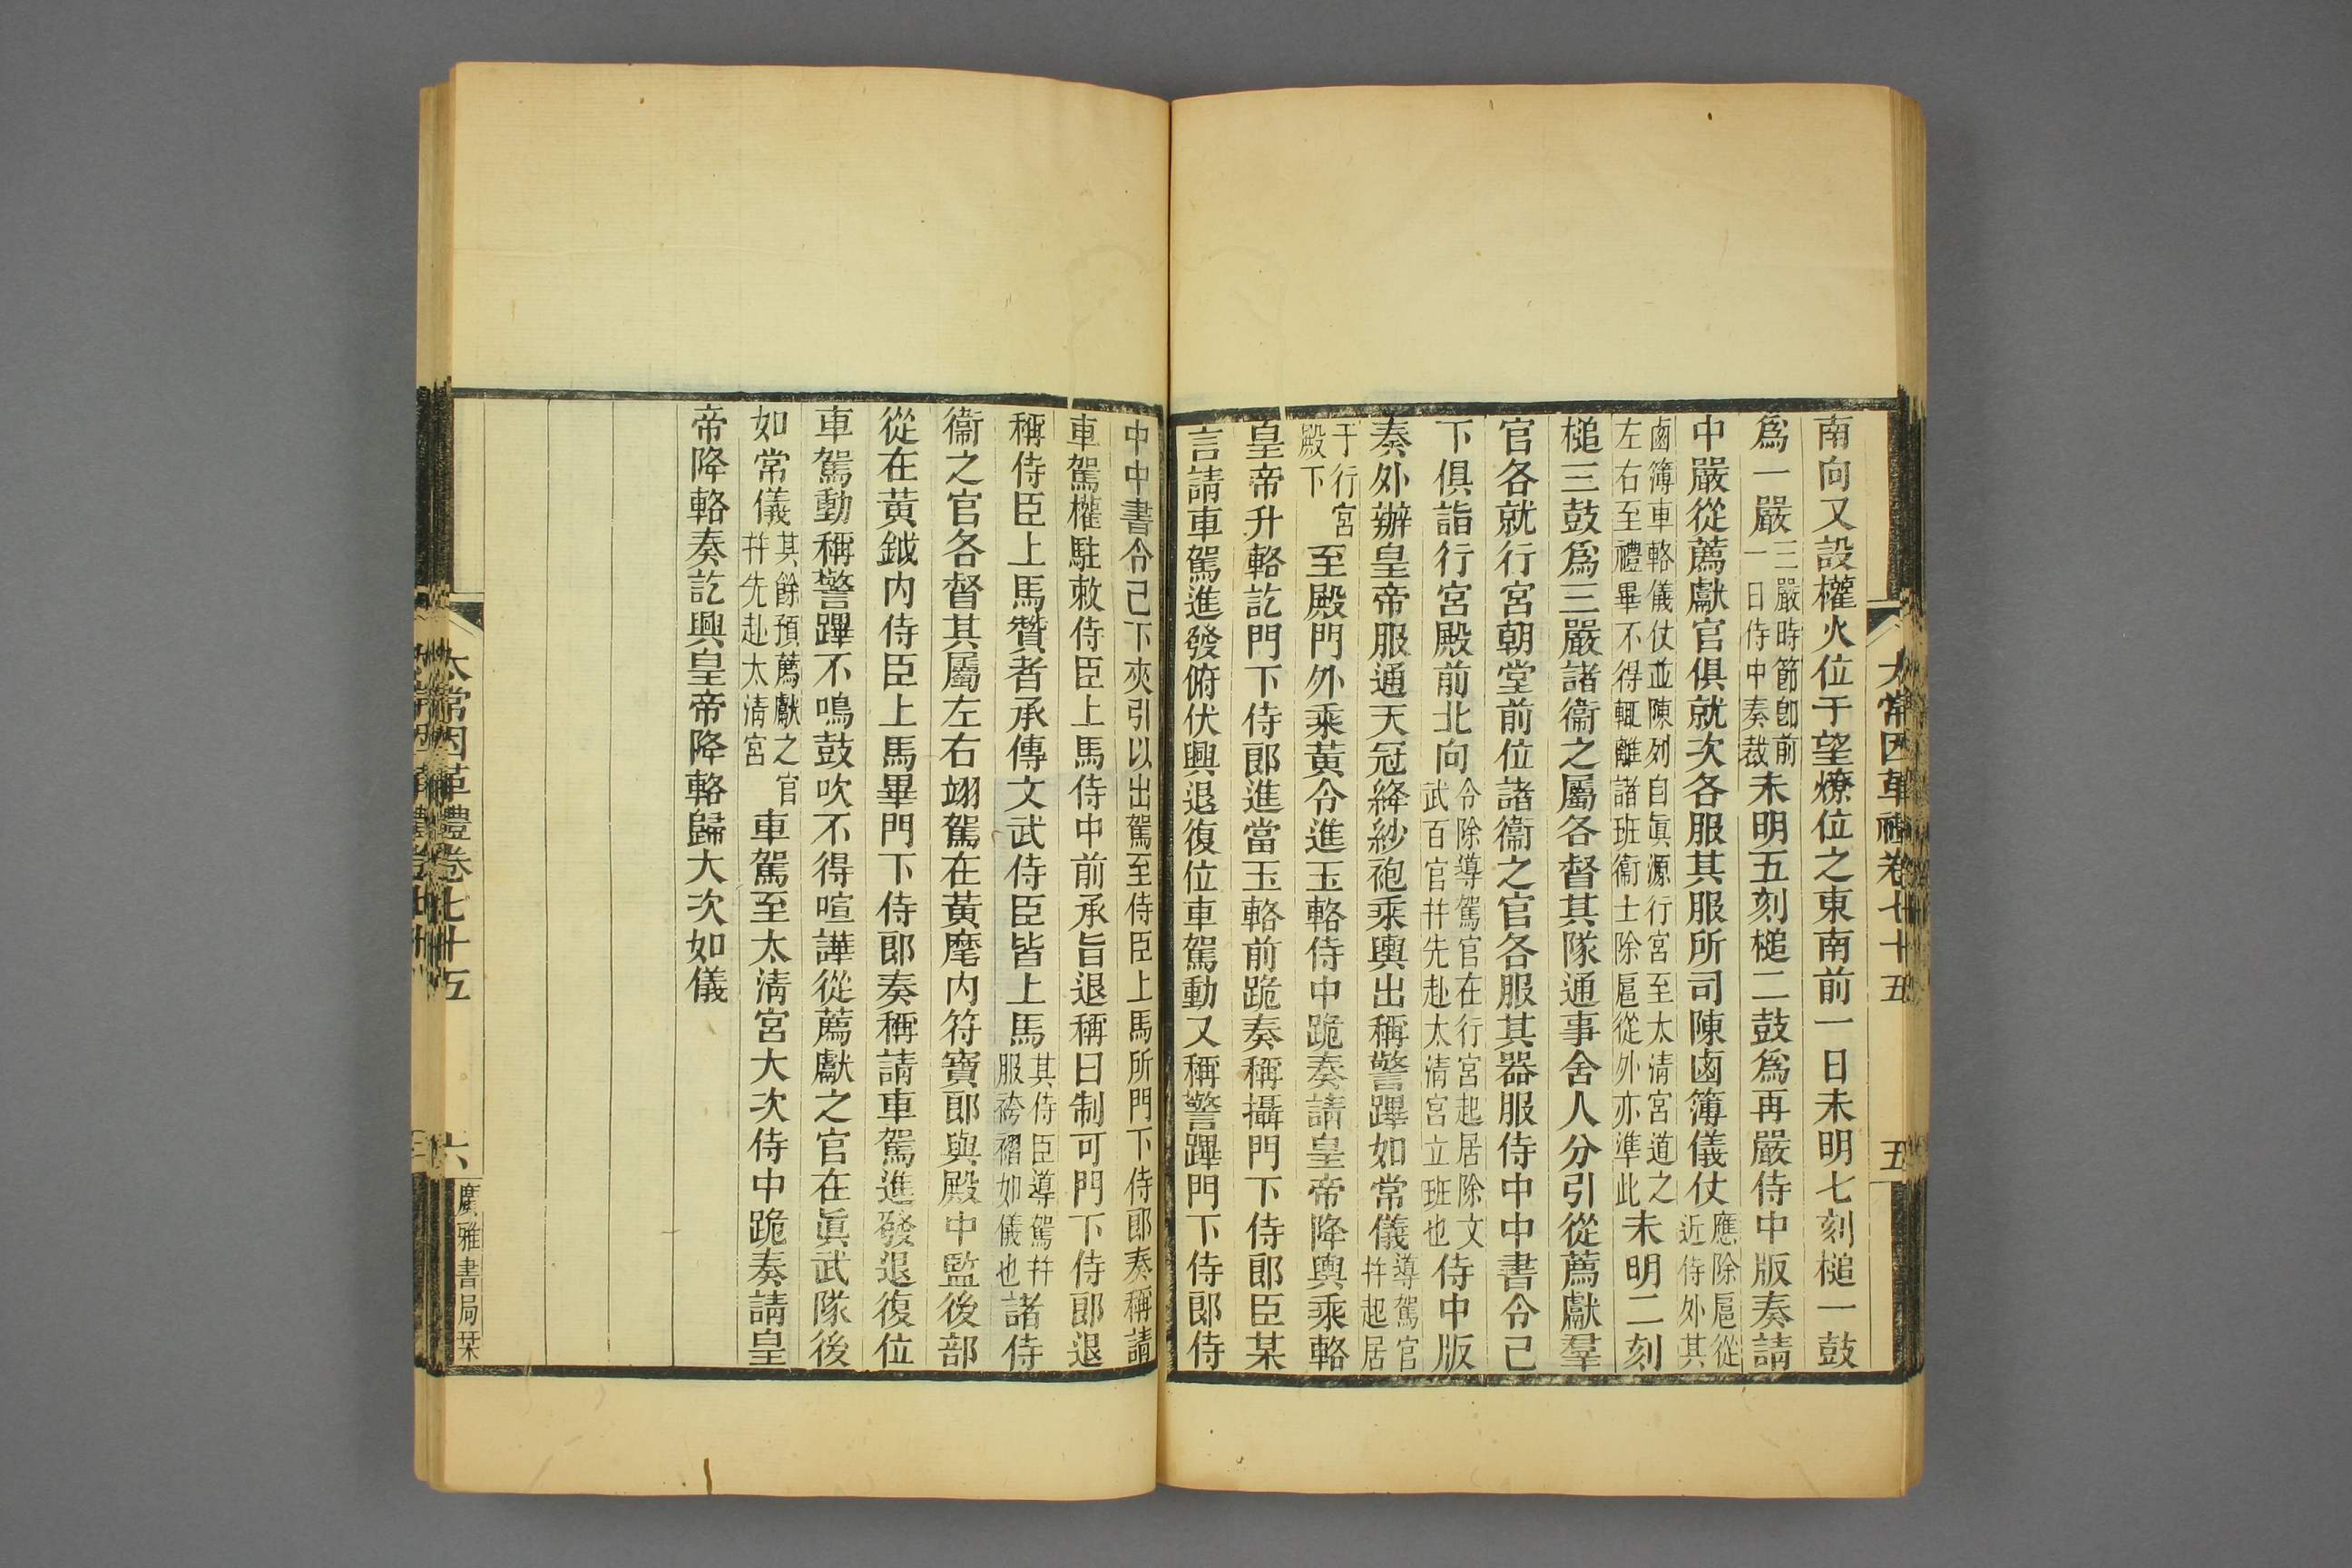 南向又設權火位于望燎位之東南前一日未明七刻槌一鼓
爲一嚴三嚴時節卽前一日侍中奏裁未明五刻槌二鼓爲再嚴侍中版奏請
中嚴從薦獻官俱就次各服其服所司陳鹵簿儀仗應除扈從近侍外其
鹵簿車輅儀仗並陳列自眞源行宮至太清宮道之左右至禮畢不得輒離諸班衞士除扈從外亦準此未明二刻
槌三鼓爲三嚴諸衞之屬各督其隊通事舍人分引從薦獻羣
官各就行宮朝堂前位諸衞之官各服其器服侍中中書令已
下俱詣行宮殿前北向令除導駕官在行宮起居除文武百官幷先赴太清宮立班也侍中版
奏外辦皇帝服通天冠絳紗袍乘輿出稱警蹕如常儀導駕官幷起居
于行宮殿下至殿門外乘黃令進玉輅侍中跪奏請皇帝降輿乘輅
皇帝升輅訖門下侍郞進當玉輅前跪奏稱攝門下侍郞臣某
言請車駕進發俯伏興退復位車駕動又稱警蹕門下侍郞侍
中中書令已下夾引以出駕至侍臣上馬所門下侍郞奏稱請
車駕權駐敕侍臣上馬侍中前承旨退稱曰制可門下侍郞退
稱侍臣上馬贊者承傳文武侍臣皆上馬其侍臣導駕幷服袴褶如儀也諸侍
衞之官各督其屬左右翊駕在黃麾内符寶郞與殿中監後部
從在黃鉞内侍臣上馬畢門下侍郞奏稱請車駕進發退復位
車駕動稱警蹕不鳴鼓吹不得喧譁從薦獻之官在眞武隊後
如常儀其餘預薦獻之官幷先赴太清宮車駕至太淸宮大次侍中跪奏請皇
帝降輅奏訖興皇帝降輅歸大次如儀
太常因革禮卷七十五
五
太常因革禮卷七十五
六
廣雅書局栞